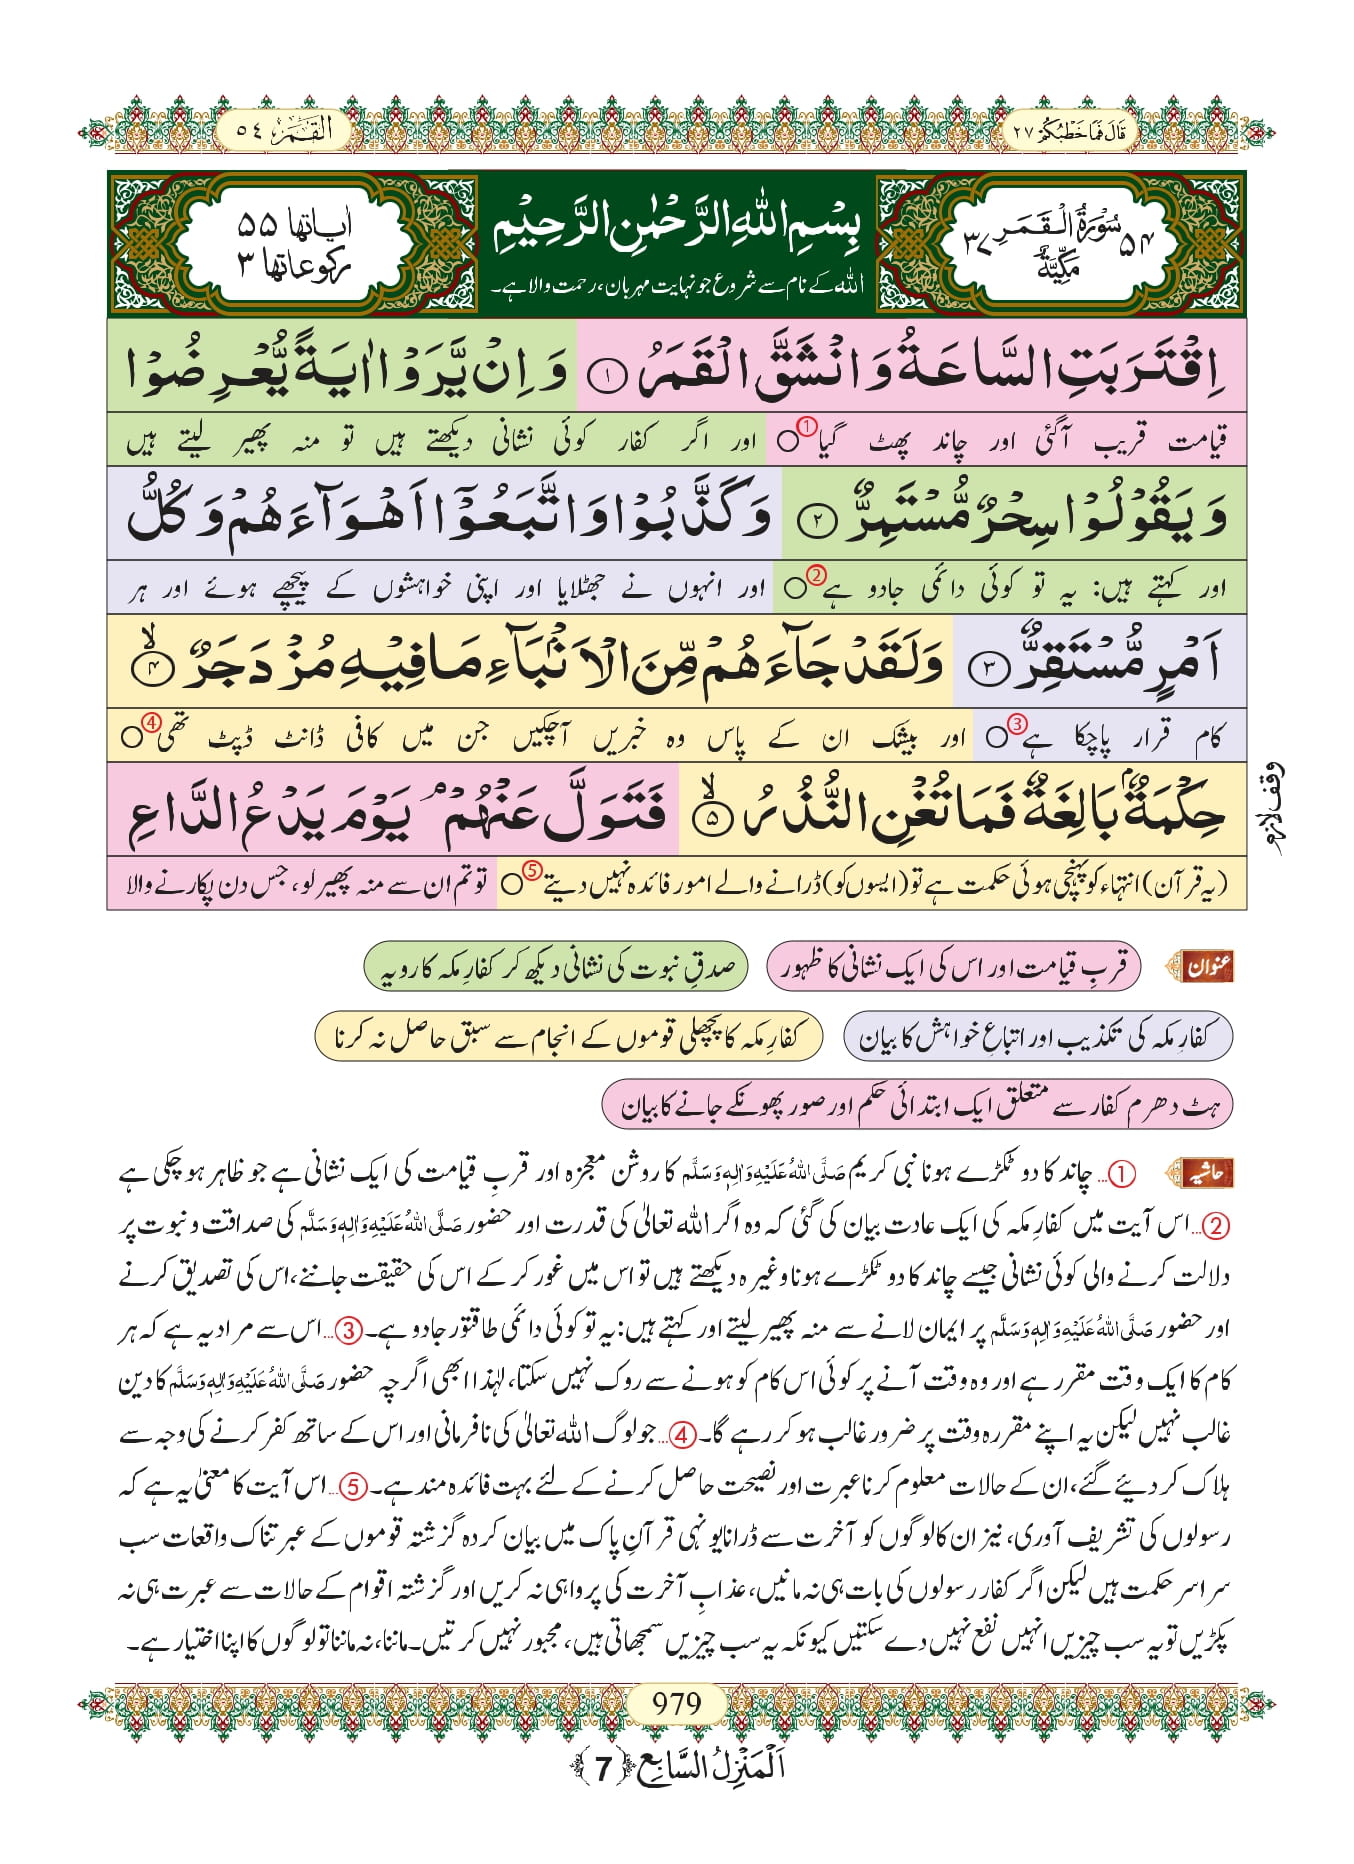 قَالَ فَمَا خَطْبُكُمْ ٢٧
الْقَمَر ٥٤
٥٤ سُوْرَةُ الْقَمَرِ مَكِّيَّةٌ ٣٧
بِسْمِ اللّٰهِ الرَّحْمٰنِ الرَّحِيْمِ
اللہ کے نام سے شروع جو نہایت مہربان، رحمت والا ہے۔
اٰیاتها ٥٥
رکوعاتها ٣
اِقْتَرَبَتِ السَّاعَةُ وَ انْشَقَّ الْقَمَرُ ﴿۱﴾ وَ اِنْ یَّرَوْا اٰیَةً یُّعْرِضُوْا
قیامت قریب آگئی اور چاند پھٹ گیا ① اور اگر کفار کوئی نشانی دیکھتے ہیں تو منہ پھیر لیتے ہیں
وَ یَقُوْلُوْا سِحْرٌ مُّسْتَمِرٌّ ﴿۲﴾ وَ كَذَّبُوْا وَ اتَّبَعُوْۤا اَهْوَآءَهُمْ وَ كُلُّ
اور کہتے ہیں: یہ تو کوئی دائمی جادو ہے ② اور انہوں نے جھٹلایا اور اپنی خواہشوں کے پیچھے ہوئے اور ہر
اَمْرٍ مُّسْتَقِرٌّ ﴿۳﴾ وَ لَقَدْ جَآءَهُمْ مِّنَ الْاَنْۢبَآءِ مَا فِیْهِ مُزْدَجَرٌ ﴿۴﴾ ۙ
کام قرار پاچکا ہے ③ اور بیشک ان کے پاس وہ خبریں آچکیں جن میں کافی ڈانٹ ڈپٹ تھی ④
حِكْمَةٌۢ بَالِغَةٌ فَمَا تُغْنِ النُّذُرُ ﴿۵﴾ ۙ فَتَوَلَّ عَنْهُمْ ۘ یَوْمَ یَدْعُ الدَّاعِ
وقف لازم
(یہ قرآن) انتہاء کو پہنچی ہوئی حکمت ہے تو (ایسوں کو) ڈرانے والے امور فائدہ نہیں دیتے ⑤ تو تم ان سے منہ پھیر لو، جس دن پکارنے والا
عنوان قربِ قیامت اور اس کی ایک نشانی کا ظہور صدقِ نبوت کی نشانی دیکھ کر کفارِ مکہ کا رویہ
کفارِ مکہ کی تکذیب اور اتباعِ خواہش کا بیان کفارِ مکہ کا پچھلی قوموں کے انجام سے سبق حاصل نہ کرنا
ہٹ دھرم کفار سے متعلق ایک ابتدائی حکم اور صور پھونکے جانے کا بیان
حاشیہ ①... چاند کا دو ٹکڑے ہونا نبی کریم صَلَّى اللهُ عَلَيْهِ وَاٰلِهٖ وَسَلَّم کا روشن معجزہ اور قربِ قیامت کی ایک نشانی ہے جو ظاہر ہو چکی ہے
②... اس آیت میں کفارِ مکہ کی ایک عادت بیان کی گئی کہ وہ اگر اللہ تعالیٰ کی قدرت اور حضور صَلَّى اللهُ عَلَيْهِ وَاٰلِهٖ وَسَلَّم کی صداقت و نبوت پر
دلالت کرنے والی کوئی نشانی جیسے چاند کا دو ٹکڑے ہونا وغیرہ دیکھتے ہیں تو اس میں غور کر کے اس کی حقیقت جاننے، اس کی تصدیق کرنے
اور حضور صَلَّى اللهُ عَلَيْهِ وَاٰلِهٖ وَسَلَّم پر ایمان لانے سے منہ پھیر لیتے اور کہتے ہیں: یہ تو کوئی دائمی طاقتور جادو ہے۔ ③... اس سے مراد یہ ہے کہ ہر
کام کا ایک وقت مقرر ہے اور وہ وقت آنے پر کوئی اس کام کو ہونے سے روک نہیں سکتا، لہٰذا ابھی اگرچہ حضور صَلَّى اللهُ عَلَيْهِ وَاٰلِهٖ وَسَلَّم کا دین
غالب نہیں لیکن یہ اپنے مقررہ وقت پر ضرور غالب ہو کر رہے گا۔ ④... جو لوگ اللہ تعالیٰ کی نافرمانی اور اس کے ساتھ کفر کرنے کی وجہ سے
ہلاک کر دیئے گئے، ان کے حالات معلوم کرنا عبرت اور نصیحت حاصل کرنے کے لئے بہت فائدہ مند ہے۔ ⑤... اس آیت کا معنیٰ یہ ہے کہ
رسولوں کی تشریف آوری، نیز ان کا لوگوں کو آخرت سے ڈرانا یونہی قرآنِ پاک میں بیان کردہ گزشتہ قوموں کے عبرتناک واقعات سب
سراسر حکمت ہیں لیکن اگر کفار رسولوں کی بات ہی نہ مانیں، عذابِ آخرت کی پرواہی نہ کریں اور گزشتہ اقوام کے حالات سے عبرت ہی نہ
پکڑیں تو یہ سب چیزیں انہیں نفع نہیں دے سکتیں کیونکہ یہ سب چیزیں سمجھاتی ہیں، مجبور نہیں کرتیں۔ ماننا، نہ ماننا تو لوگوں کا اپنا اختیار ہے۔
979
اَلْمَنْزِلُ السَّابِع ﴿7﴾